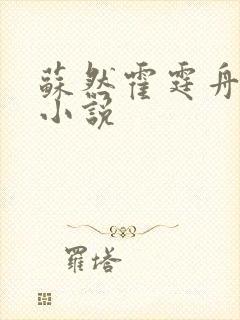 蘇然霍霆舟
小說
羅塔